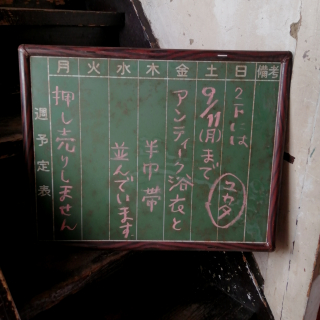 月 火 水 木 金 土 日 備考
週予定表
2Fには
9/11(月)まで
ユカタ
アンティーク浴衣と
半巾帯
並んでいます
押し売りしません